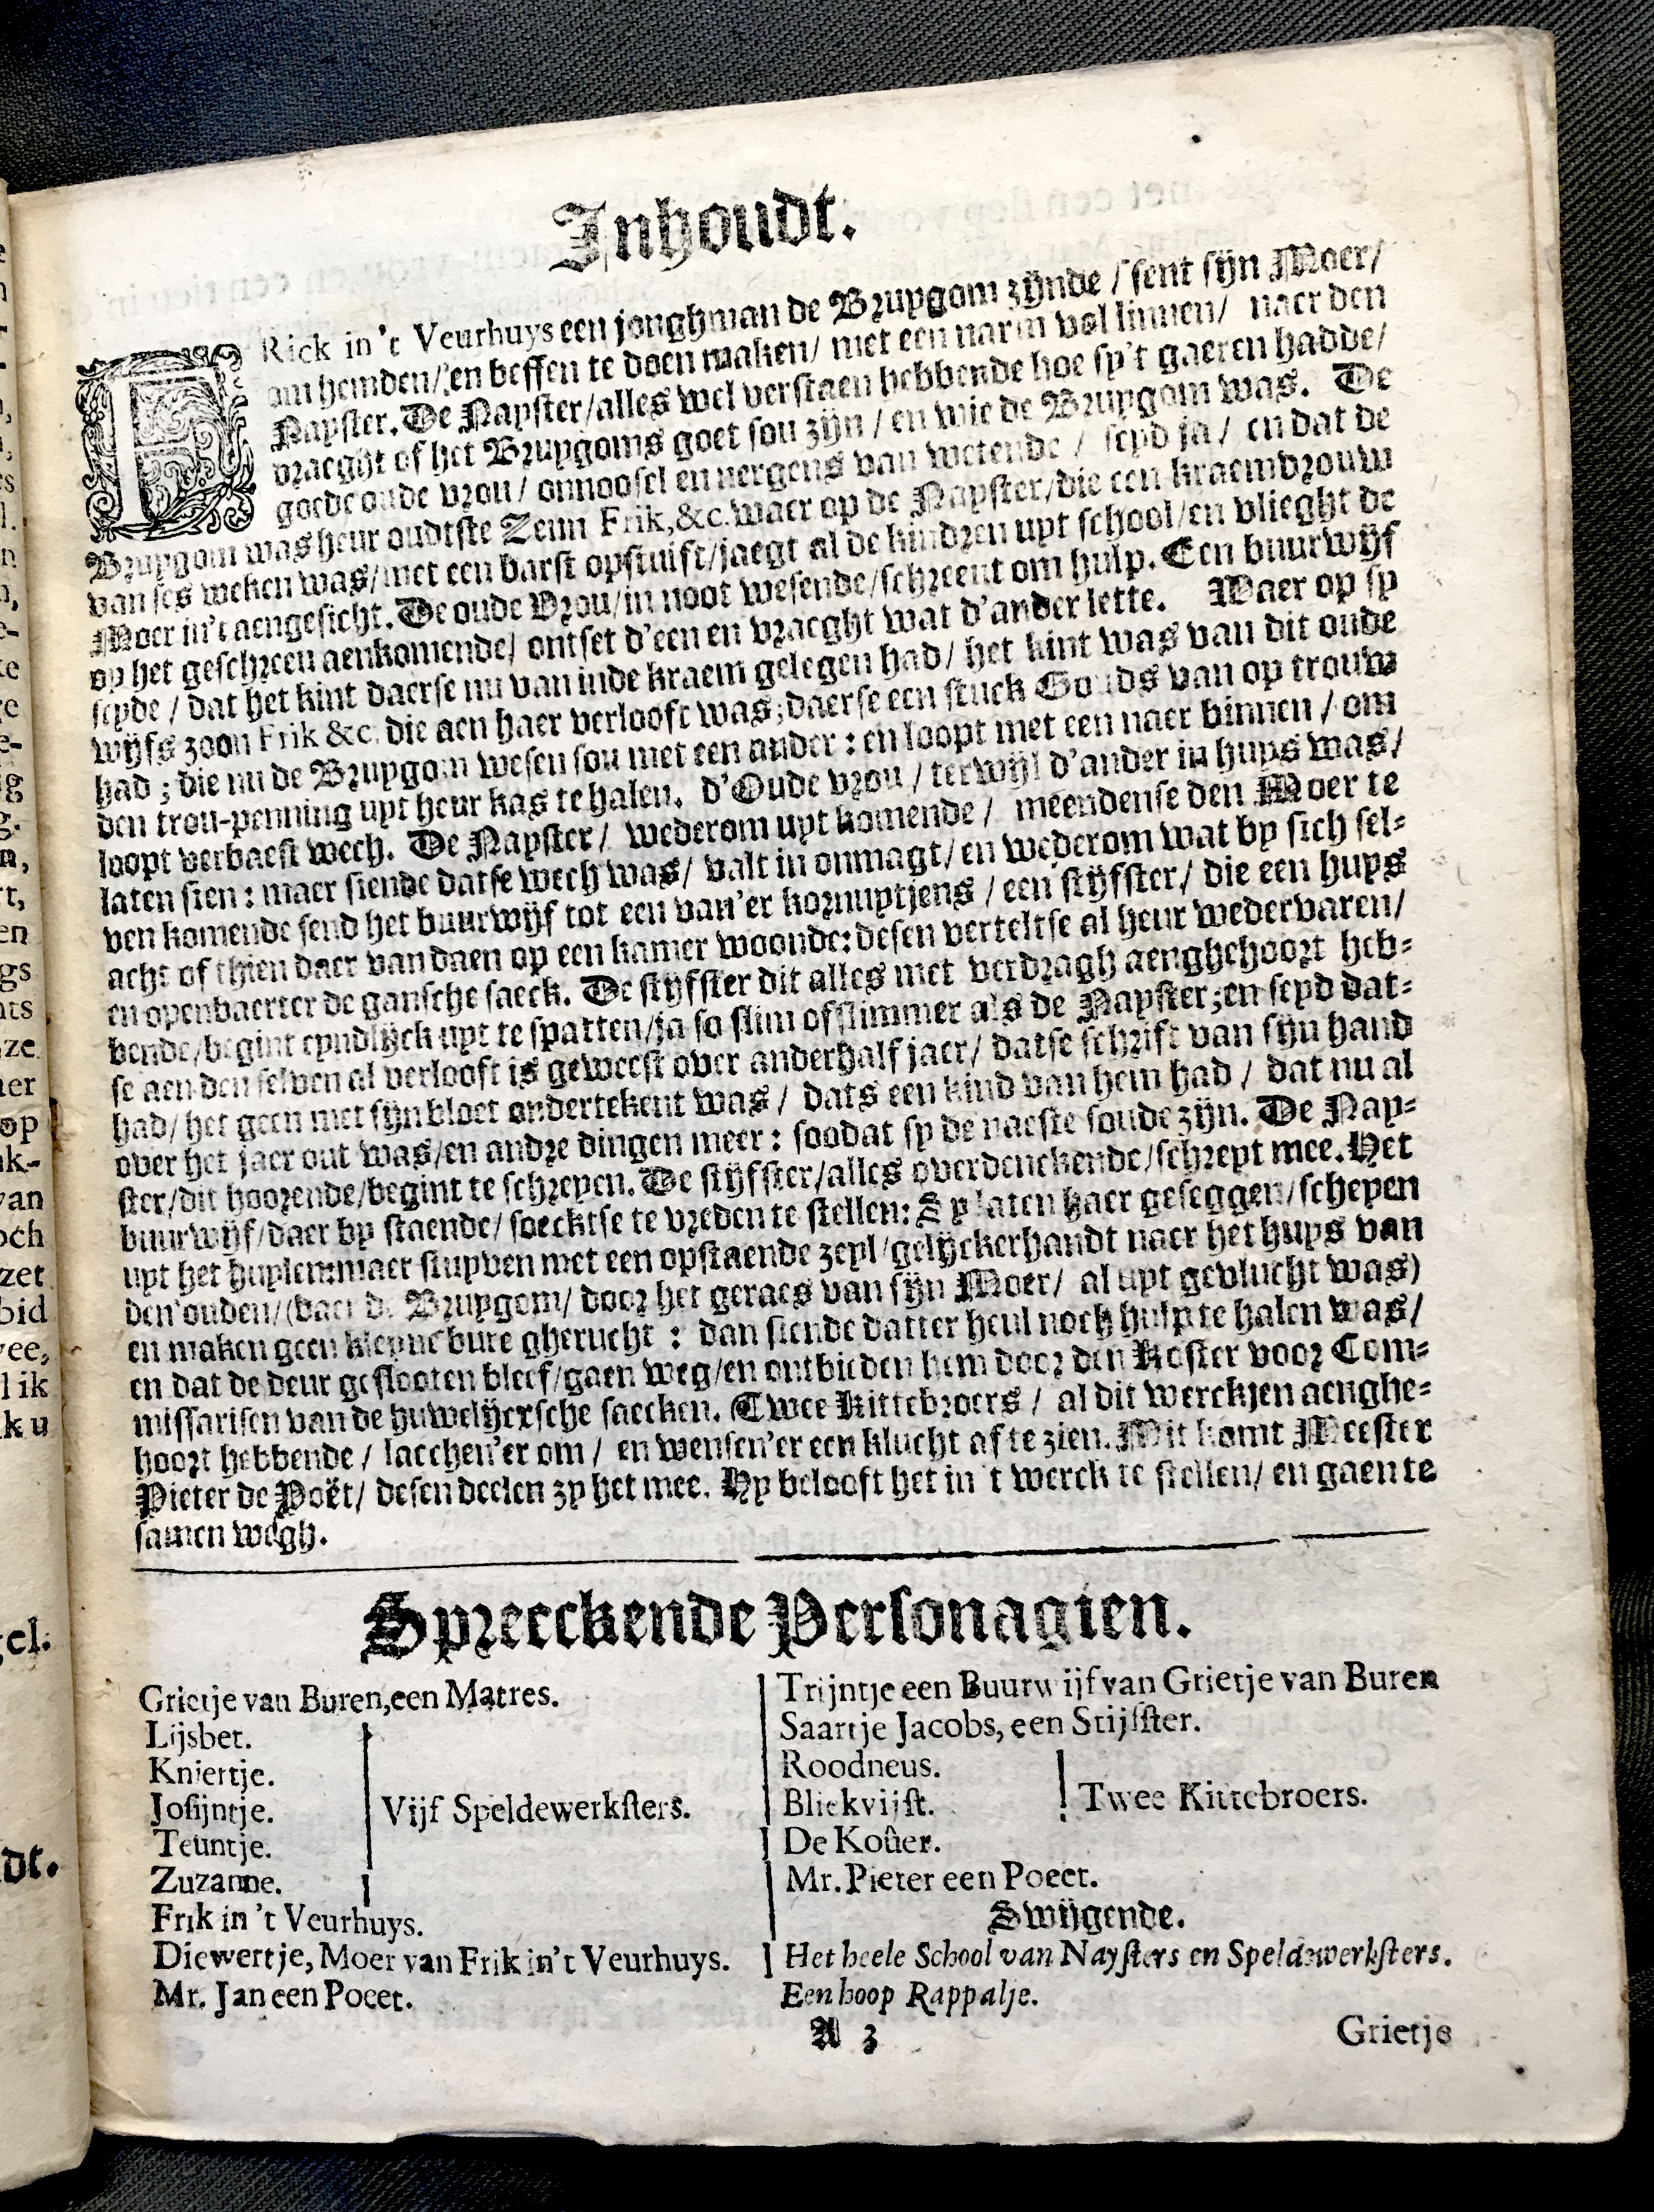 Inhoudt.
FRick in 't Veurhuys een jonghman de Bruygom zijnde / sent sijn Moer/
om hemden/ en beffen te doen maken/ met een narm vol linnen/ naer den
Nayster. De Nayster/alles wel verstaen hebbende hoe sy't gaeren hadde/
vraeght of het Bruygoms goet sou zijn / en wie de Bruygom was. De
goede oude vrou/ onnoosel en nergens van wetende / seyd ja / en dat de
Bruygom was heur oudtste Zeun Frik, &c. waer op de Nayster/die een kraemvrouw
van ses weken was/met een barst opstuift/jaegt al de kindren uyt school/en vlieght de
Moer in't aengesicht. De oude Vrou/in noot wesende/schreeut om hulp. Een buurwijf
op het geschreeu aenkomende/ ontset d'een en vraeght wat d'ander lette. Waer op sy
seyde / dat het kint daerse nu van inde kraem gelegen had/ het kint was van dit oude
wijfs zoon Frik &c. die aen haer verlooft was; daerse een stuck Gouds van op trouw
had ; die nu de Bruygom wesen sou met een ander : en loopt met een naer binnen / om
den trou-penning uyt heur kas te halen. d'Oude vrou / terwijl d'ander in huys was/
loopt verbaest wech. De Nayster/ wederom uyt komende / meendense den Moer te
laten sien : maer siende datse wech was/ valt in onmagt/en wederom wat by sich sel-
ven komende send het buurwijf tot een van'er kornuytjens / een stijfster/ die een huys
acht of thien daer van daen op een kamer woonde: desen verteltse al heur wedervaren/
en openbaerter de gansche saeck. De stijfster dit alles met verdragh aenghehoort heb-
bende/begint eyndlijck uyt te spatten/ja so slim of slimmer als de Nayster; en seyd dat-
se aen den selven al verlooft is geweest over anderhalf jaer/ datse schrift van sijn hand
had/ het geen met sijn bloet ondertekent was/ dats een kind van hem had / dat nu al
over het jaer out was/en andre dingen meer : soodat sy de naeste soude zijn. De Nay-
ster/dit hoorende/begint te schreyen. De stijfster/alles overdenckende/schreyt mee. Het
buurwijf/daer by staende/ soecktse te vreden te stellen: Sy laten haer geseggen/scheyen
uyt het huylen:maer stuyven met een opstaende zeyl/gelijckerhandt naer het huys van
den ouden/(daer de Bruygom/ door het geraes van sijn Moer/ al uyt gevlucht was)
en maken geen kleyne bure gherucht : dan siende datter heul noch hulp te halen was/
en dat de deur geslooten bleef/gaen weg/en ontbieden hem door den Koster voor Com-
missarisen van de huwelijcxsche saecken. Twee Kittebroers / al dit werckjen aenghe-
hoort hebbende / lacchen'er om / en wensen'er een klucht af te zien. Mit komt Meester
Pieter de Poët/ desen deelen zy het mee. Hy belooft het in 't werck te stellen/ en gaen te
samen wegh.
Spreeckende Personagien.
Grietje van Buren, een Matres.
Lijsbet.
Kniertje.
Josijntje.
Teuntje.
Zuzanne.
Vijf Speldewerksters.
Frik in 't Veurhuys.
Diewertje, Moer van Frik in't Veurhuys.
Mr. Jan een Poeet.
Trijntje een Buurwijf van Grietje van Buren
Saartje Jacobs, een Stijfster.
Roodneus.
Bliekvijst.
Twee Kittebroers.
De Koûer.
Mr. Pieter een Poeet.
Swijgende.
Het heele School van Naysters en Speldewerksters.
Een hoop Rappalje.
A 3
Grietje